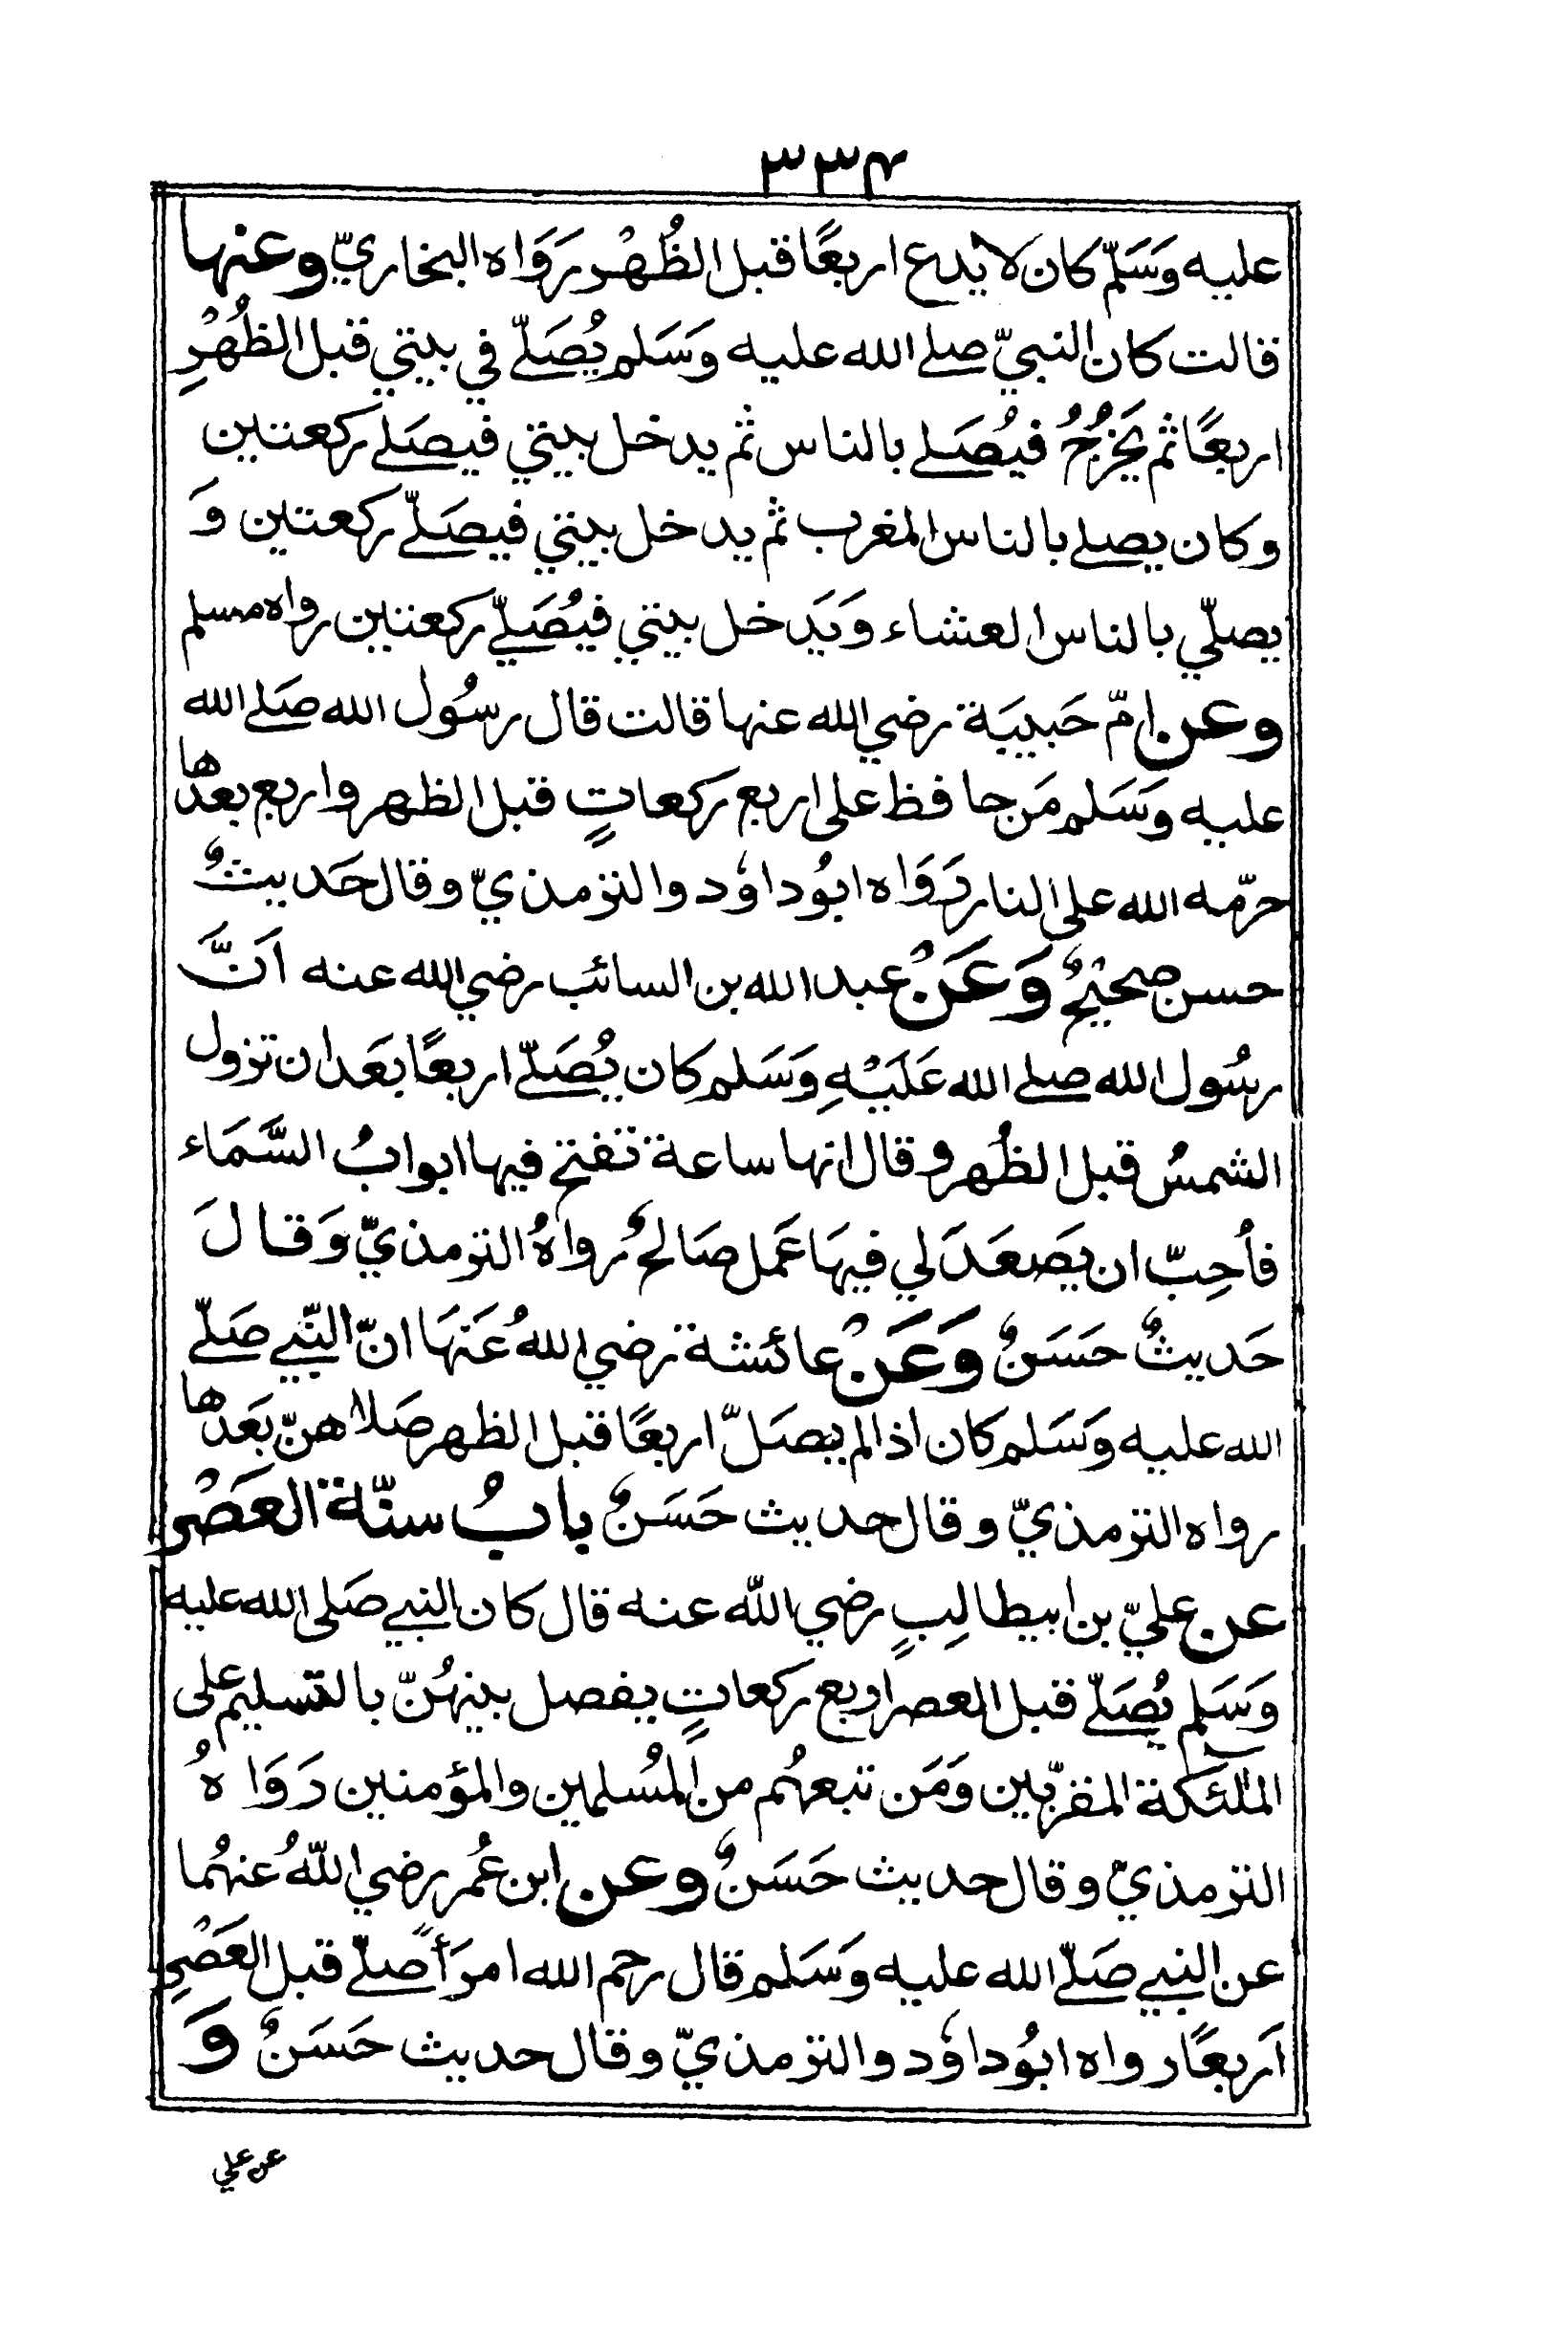 ٣٣٤
عليه وَسَلّم كان لا يدع اربعًا قبل الظُهْر رَوَاه البخاريّ وعنها
قالت كان النبيّ صلے الله عليه وَسَلم يُصَلّے في بيتي قبل الظُهْرِ
اربعًا ثم يَخرُجُ فيُصَلے بالناس ثم يدخل بيتي فيصَلے ركعتين
وكان يصلے بالناس المغرب ثم يدخل بيتي فيصَلّے ركعتين وَ
يصلّي بالناس العشاء وَيَدخل بيتي فيُصَلّے ركعتين رواه مسلم
وعن امّ حَبيبَة رضي الله عنها قالت قال رسُول الله صَلے الله
عليه وَسَلم مَن حافظ على اربع ركعاتٍ قبل الظهر واربع بعدها
حرّمه الله على النار رَوَاه ابُوداوٗد والترمذيّ وقال حَديثٌ
حسن صحيْحٌ وَعَنْ عبد الله بن السائب رضي الله عنه اَنَّ
رسُول الله صلے الله عَلَيْهِ وَسَلم كان يُصَلّے اربعًا بَعَد ان تزول
الشمسُ قبل الظُهر وقال انها ساعة تفتح فيها ابوابُ السَّمَاء
فأحِبّ ان يَصعَدَ لي فيهَا عَمل صَالحٌ رواهُ الترمذيّ وَقَالَ
حَديثٌ حَسَنٌ وَعَنْ عائشة رضي اللهُ عَنْهَا انّ النّبے صَلّے
الله عليه وَسَلم كان اذا لم يصَلّ اربعًا قبل الظهر صَلاهنّ بَعَدها
رواه الترمذيّ وقال حديث حَسَنٌ بابُ سنّة العَصْرِ
عن عليّ بن ابيطالِبٍ رضي اللّه عنه قال كان النبے صَلى الله عليه
وَسَلم يُصَلّے قبل العصر اربع ركعاتٍ يفصل بينهُنّ بالتسليم على
الملٰئكة المقربّين وَمَن تبعهُم من المُسلمين والمؤمنين رَوَاهُ
الترمذيّ وقال حديث حَسَنٌ وعن ابن عُمر رضي اللّهُ عنهُما
عن النبے صَلّے الله عليه وَسَلم قال رحم الله امرَأً صلّے قبل العَصْرِ
اَربعًا رواه ابُوداوٗد والترمذيّ وقال حديث حَسَنٌ وَ
عن علي